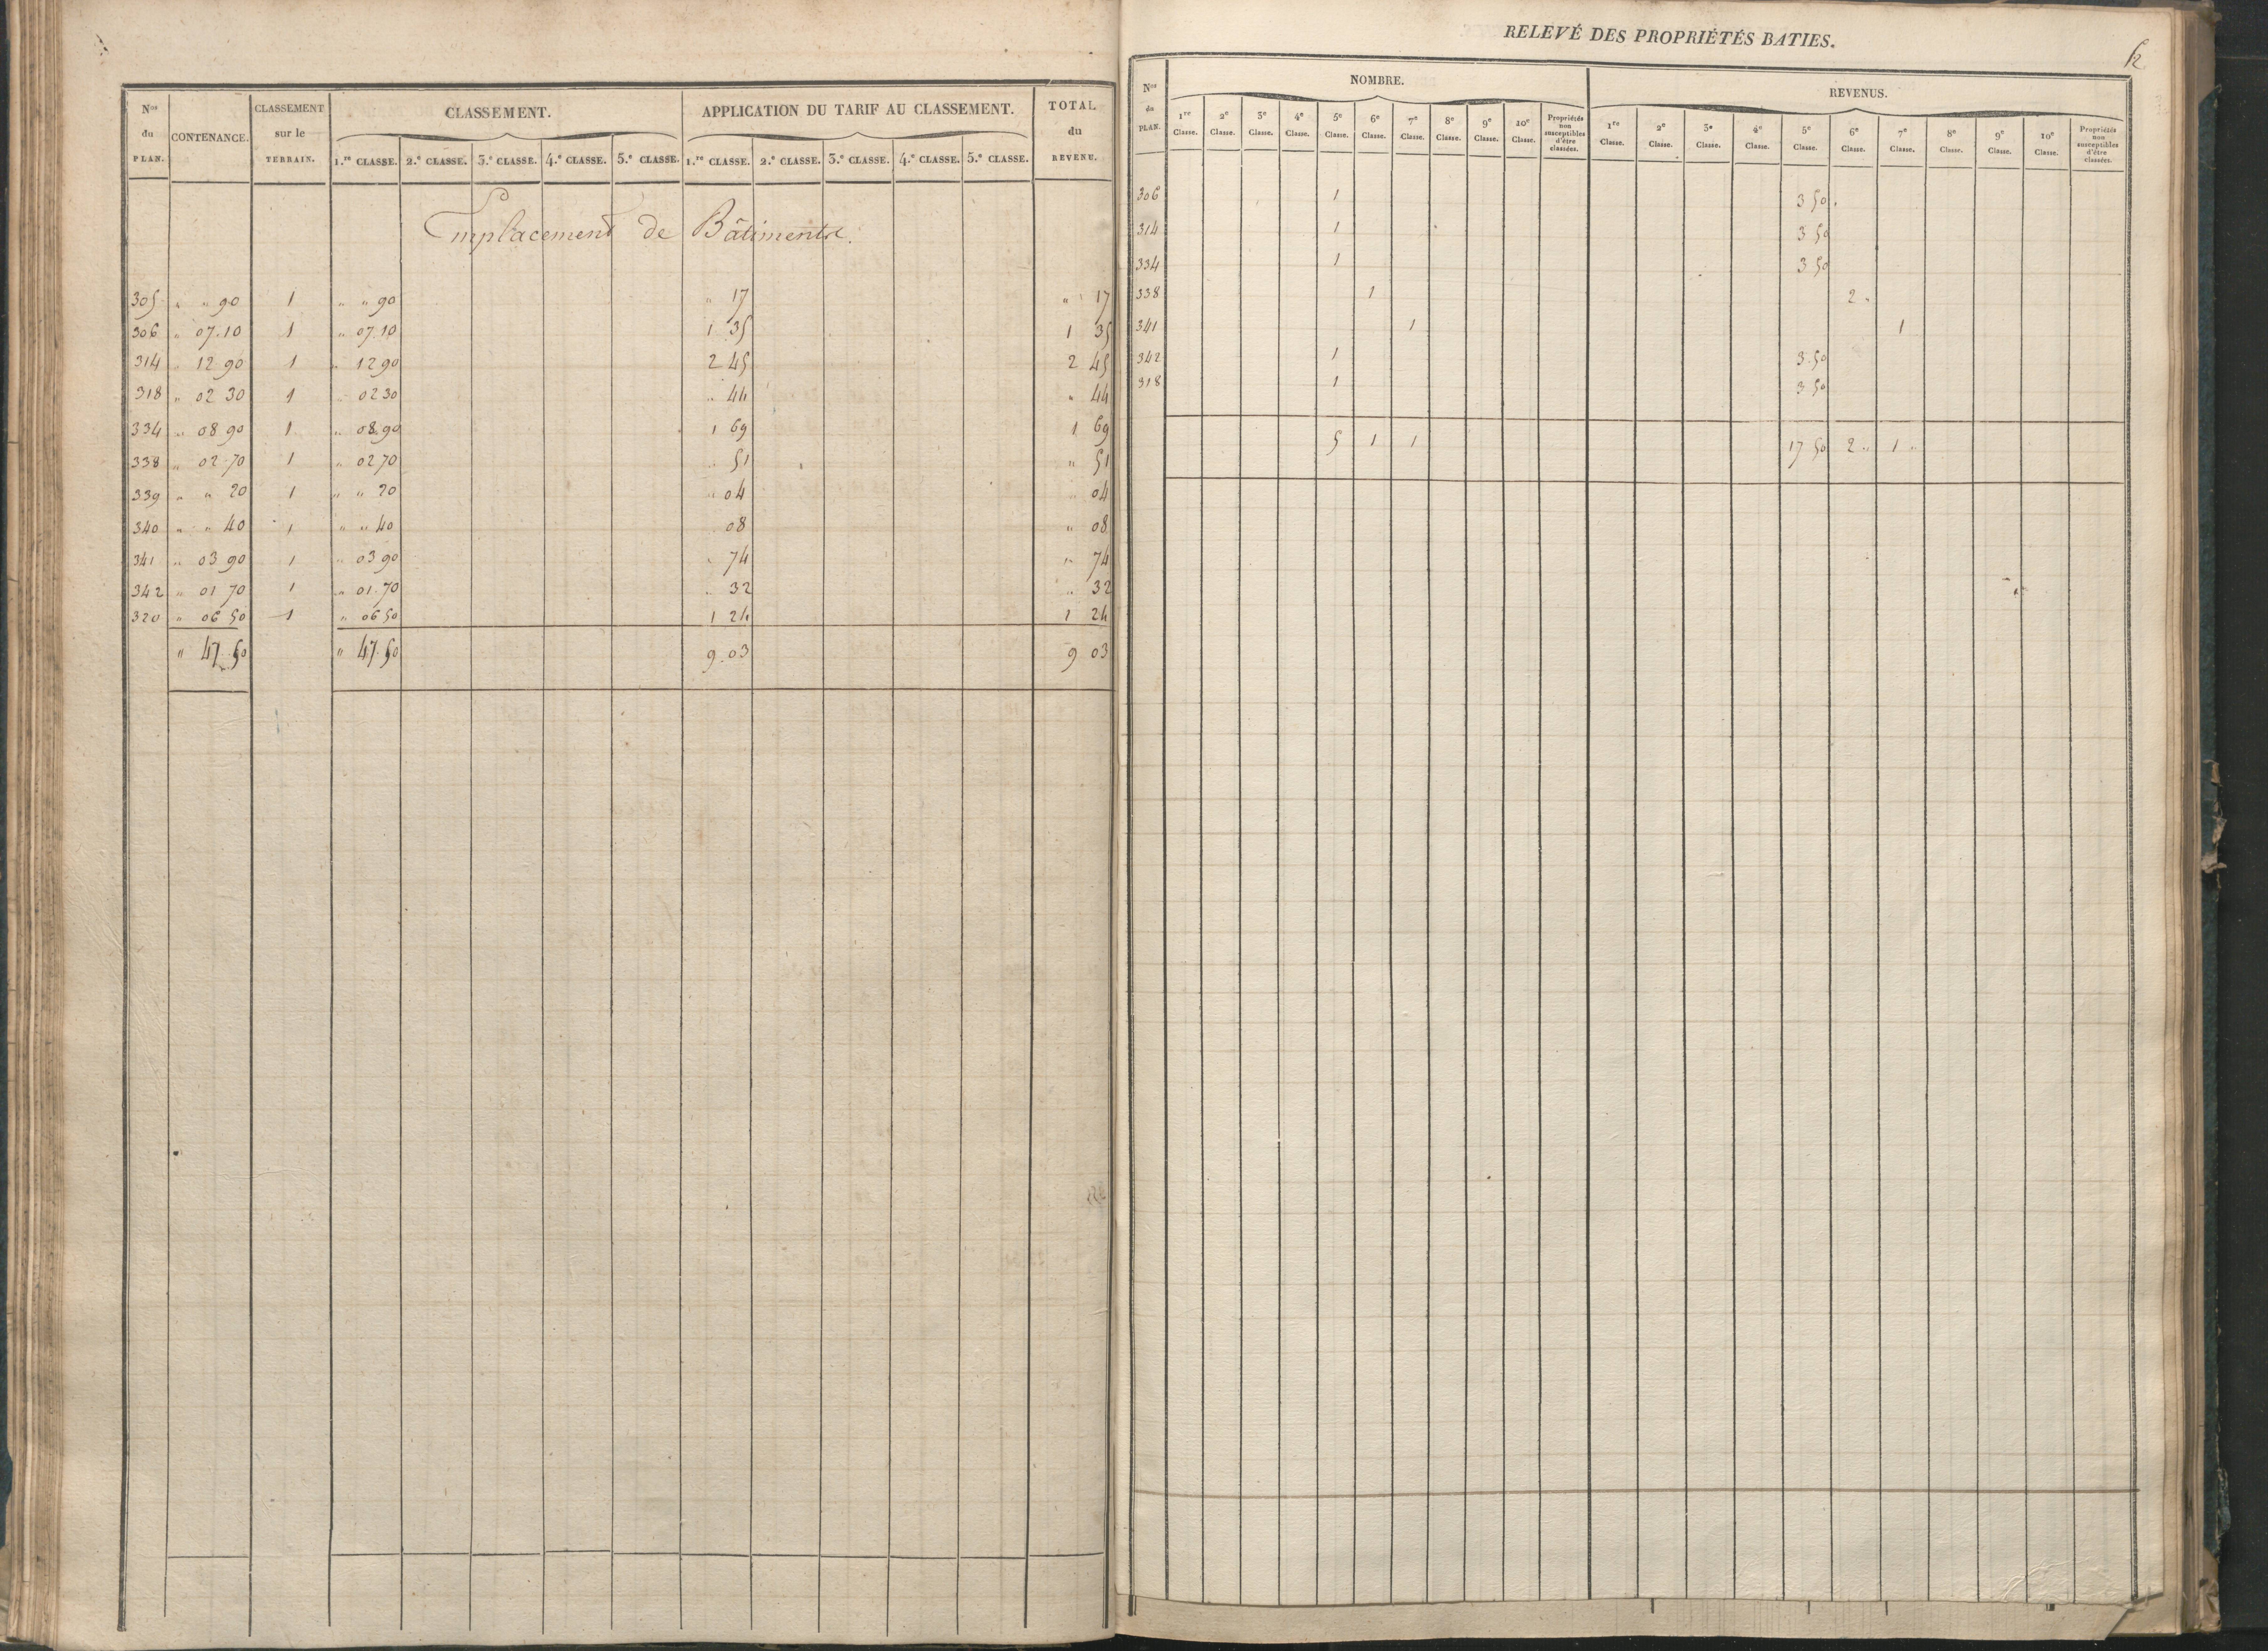 Nos du PLAN. CONTENANCE. CLASSEMENT sur le TERRAIN. CLASSEMENT. APPLICATION DU TARIF AU CLASSEMENT. TOTAL du REVENU.
1.re CLASSE. 2.e CLASSE. 3.e CLASSE. 4.e CLASSE. 5.e CLASSE. 1.re CLASSE. 2.e CLASSE. 3.e CLASSE. 4.e CLASSE. 5.e CLASSE.
Emplacement de Bâtiments.
305 " " 90 1 " " 90 " 17 " 17
306 " 07.10 1 " 07.10 1 35 1 35
314 " 12 90 1 " 12 90 2 45 2 45
318 " 02 30 1 " 02 30 " 44 " 44
334 " 08 90 1 " 08.90 1 69 1 69
338 " 02 70 1 " 02 70 " 51 " 51
339 " " 20 1 " " 20 " 04 " 04
340 " " 40 1 " " 40 " 08 " 08
341 " 03 90 1 " 03 90 " 74 " 74
342 " 01 70 1 " 01.70 " 32 " 32
320 " 06 50 1 " 06 50 1 24 1 24
" 47.50 " 47.50 9.03 9 03
RELEVÉ DES PROPRIÉTÉS BATIES.
Nos du PLAN. NOMBRE. REVENUS.
1re Classe. 2e Classe. 3e Classe. 4e Classe. 5e Classe. 6e Classe. 7e Classe. 8e Classe. 9e Classe. 10e Classe. Propriétés non susceptibles d'être classées. 1re Classe. 2e Classe. 3e Classe. 4e Classe. 5e Classe. 6e Classe. 7e Classe. 8e Classe. 9e Classe. 10e Classe. Propriétés non susceptibles d'être classées.
306 1 3 50
314 1 3 50
334 1 3 50
338 1 2 "
341 1 1
342 1 3.50
318 1 3 50
5 1 1 17 50 2 " 1 "